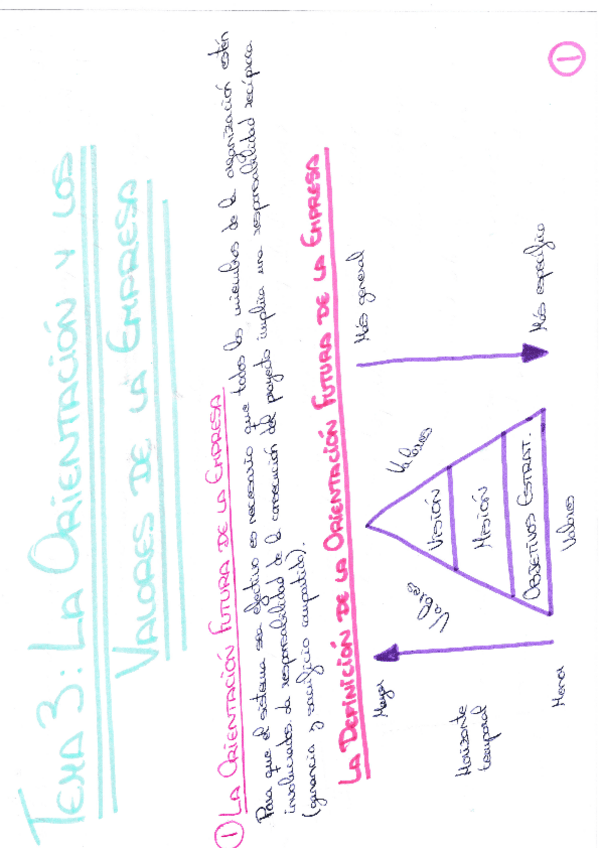 TEMA 3: LA ORIENTACIÓN Y LOS
VALORES DE LA EMPRESA
① LA ORIENTACIÓN FUTURA DE LA EMPRESA
Para que el sistema sea efectivo es necesario que todos los miembros de la organización estén
involucrados. La responsabilidad de la consecución del proyecto implica una responsabilidad recíproca
(ganancia y sacrificio compartido).
LA DEFINICIÓN DE LA ORIENTACIÓN FUTURA DE LA EMPRESA
Mayor
Horizonte
temporal
Menor
Valores
Valores
VISIÓN
MISIÓN
OBJETIVOS ESTRAT.
Valores
Más general
Más específico
①